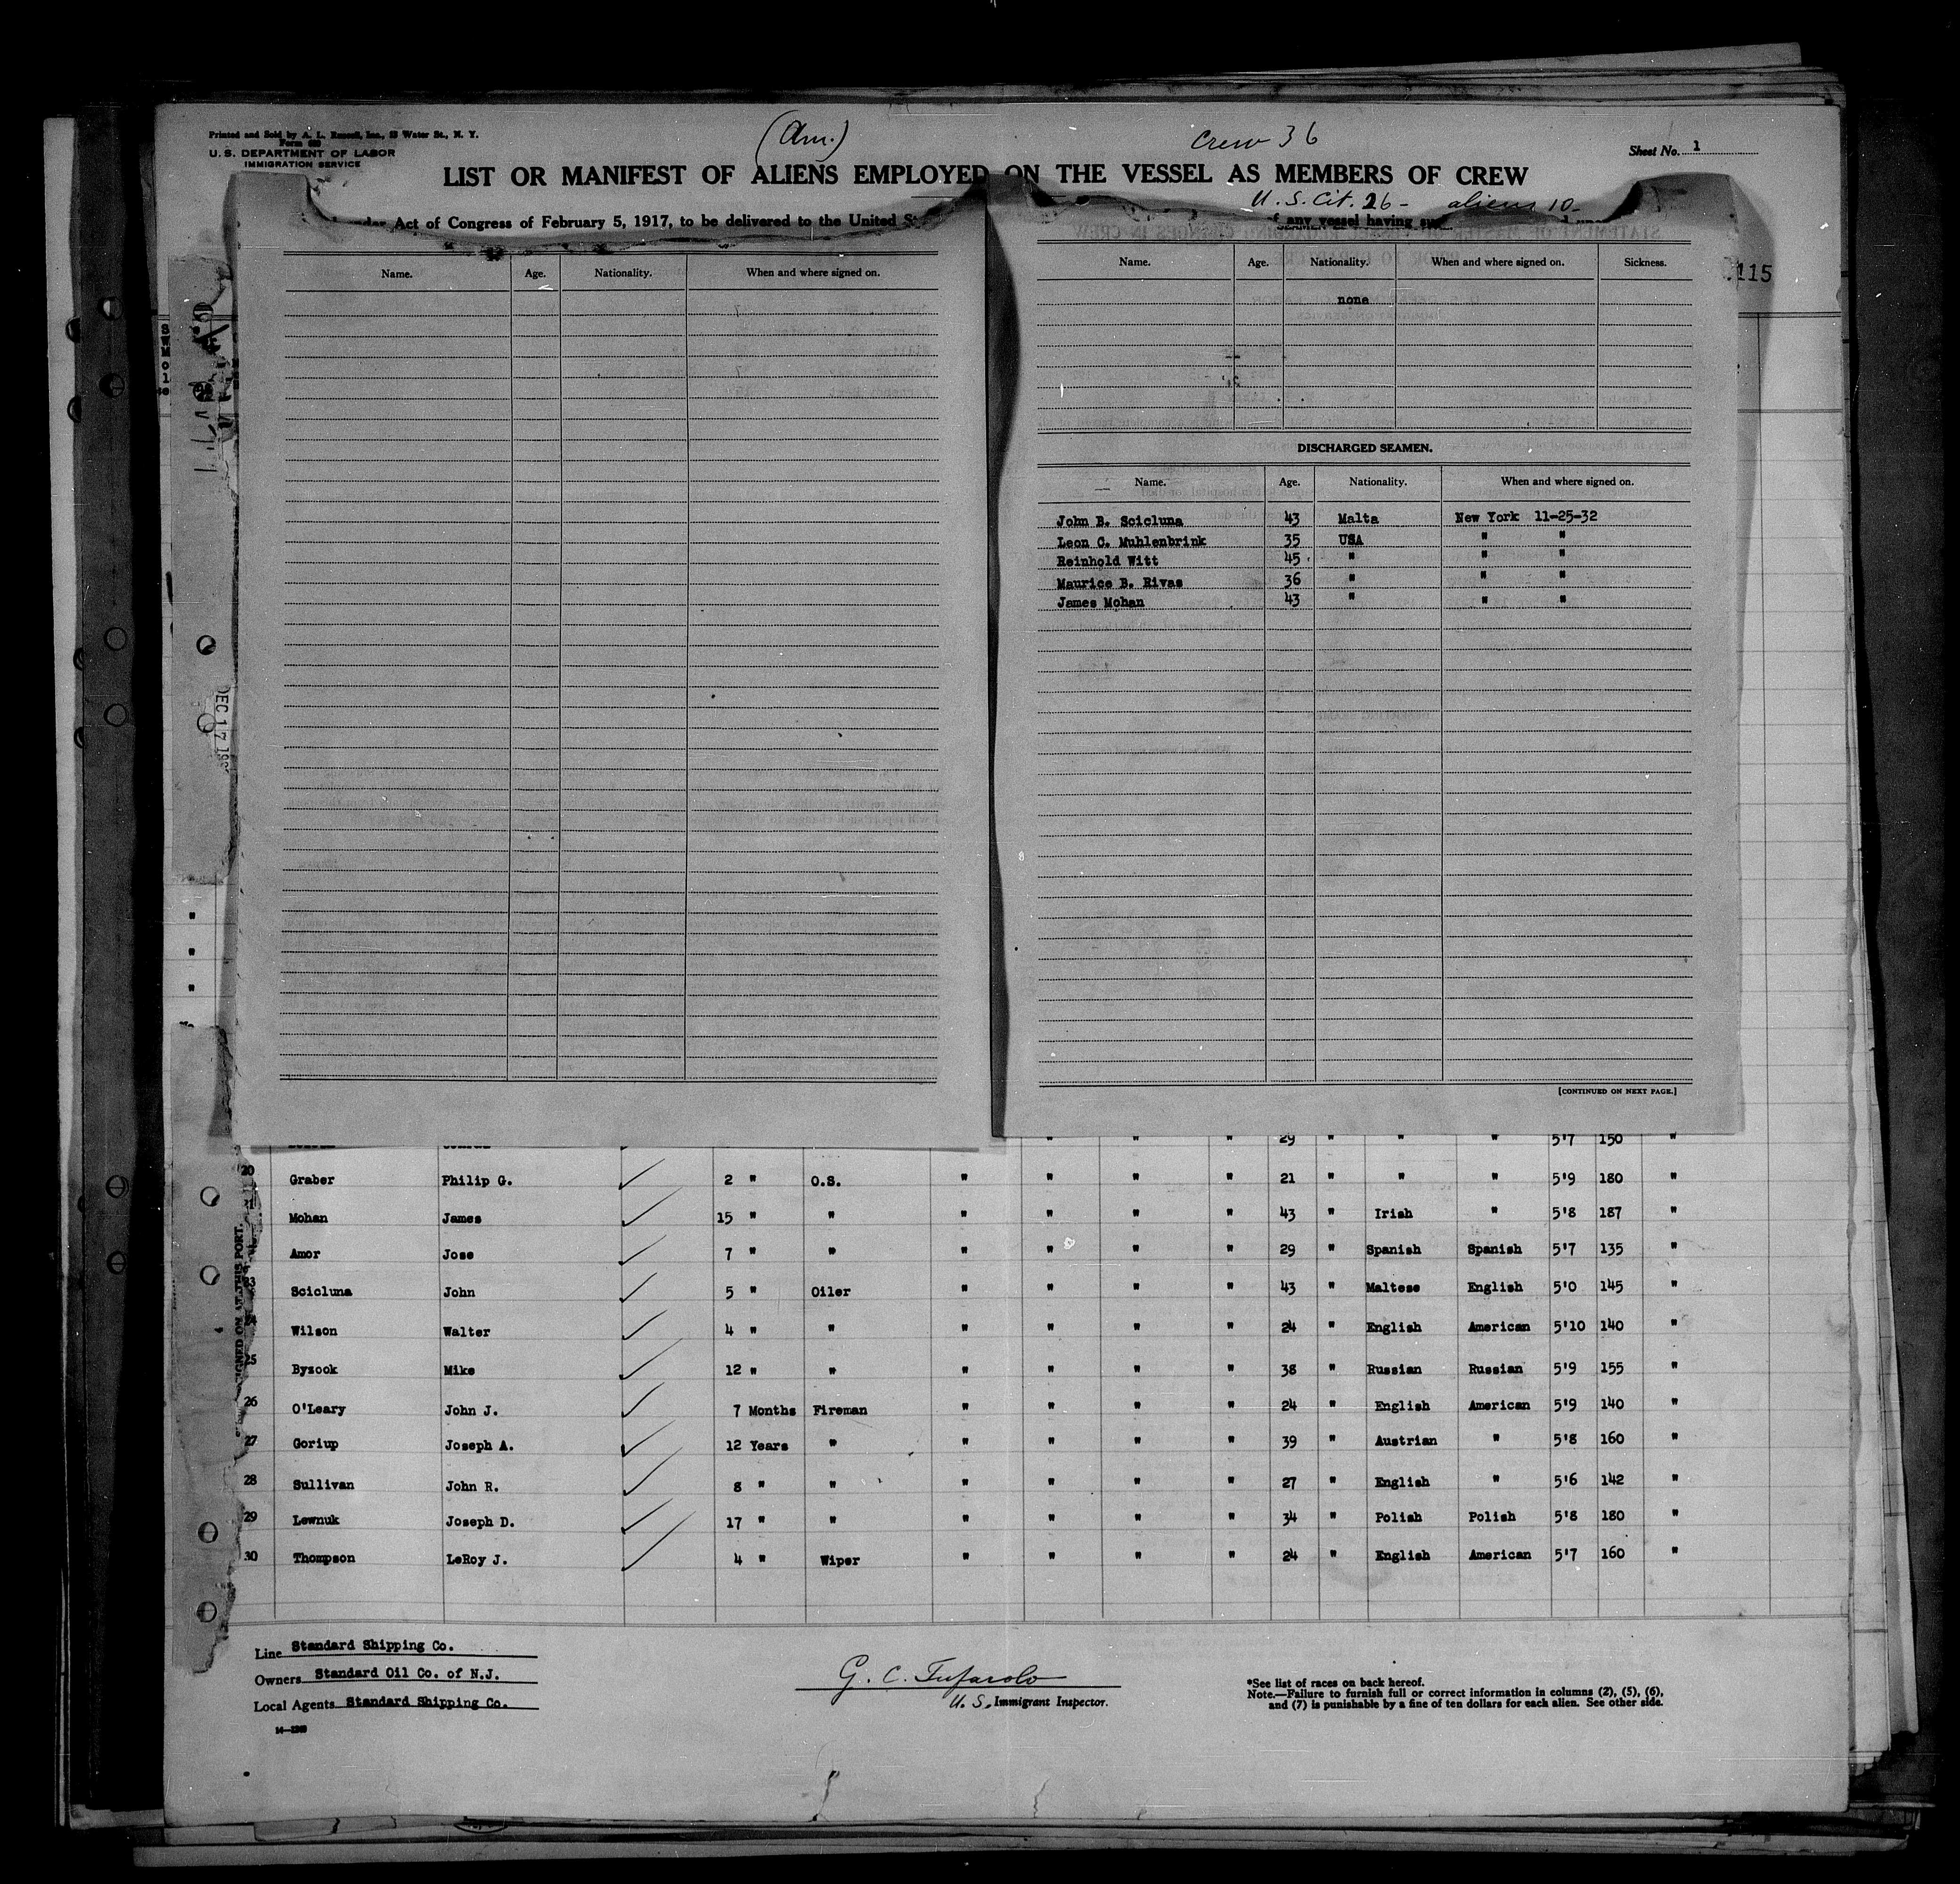 Printed and Sold by A. L. Russell, Inc., Water St., N. Y.
Form
U. S. DEPARTMENT OF LABOR
IMMIGRATION SERVICE
(Am.)
Crew 36
Sheet No. 1
LIST OR MANIFEST OF ALIENS EMPLOYED ON THE VESSEL AS MEMBERS OF CREW
U. S. Cit. 26 - aliens 10 -
Act of Congress of February 5, 1917, to be delivered to the United
of any vessel having
115
Name. Age. Nationality. When and where signed on.
Name. Age. Nationality. When and where signed on. Sickness.
none
DISCHARGED SEAMEN.
Name. Age. Nationality. When and where signed on.
John B. Scicluna 43 Malta New York 11-25-32
Leon C. Muhlenbrink 35 USA " "
Reinhold Witt 45 " " "
Maurice B. Rivas 36 " " "
James Mohan 43 " " "
[CONTINUED ON NEXT PAGE.]
DEC 17
" " " 29 " " " 5'7 150 "
20 Graber Philip G. 2 " O.S. " " " " 21 " " " 5'9 180 "
Mohan James 15 " " " " " " 43 " Irish " 5'8 187 "
Amor Jose 7 " " " " " " 29 " Spanish Spanish 5'7 135 "
Scicluna John 5 " Oiler " " " " 43 " Maltese English 5'0 145 "
Wilson Walter 4 " " " " " " 24 " English American 5'10 140 "
25 Byzook Mike 12 " " " " " " 38 " Russian Russian 5'9 155 "
26 O'Leary John J. 7 Months Fireman " " " " 24 " English American 5'9 140 "
27 Goriup Joseph A. 12 Years " " " " " 39 " Austrian " 5'8 160 "
28 Sullivan John R. 8 " " " " " " 27 " English " 5'6 142 "
29 Lewnuk Joseph D. 17 " " " " " " 34 " Polish Polish 5'8 180 "
30 Thompson LeRoy J. 4 " Wiper " " " " 24 " English American 5'7 160 "
SIGNED ON AT THIS PORT.
Line Standard Shipping Co.
Owners Standard Oil Co. of N.J.
Local Agents Standard Shipping Co.
G. C. Tufarolo
U. S. Immigrant Inspector.
*See list of races on back hereof.
Note.—Failure to furnish full or correct information in columns (2), (5), (6),
and (7) is punishable by a fine of ten dollars for each alien. See other side.